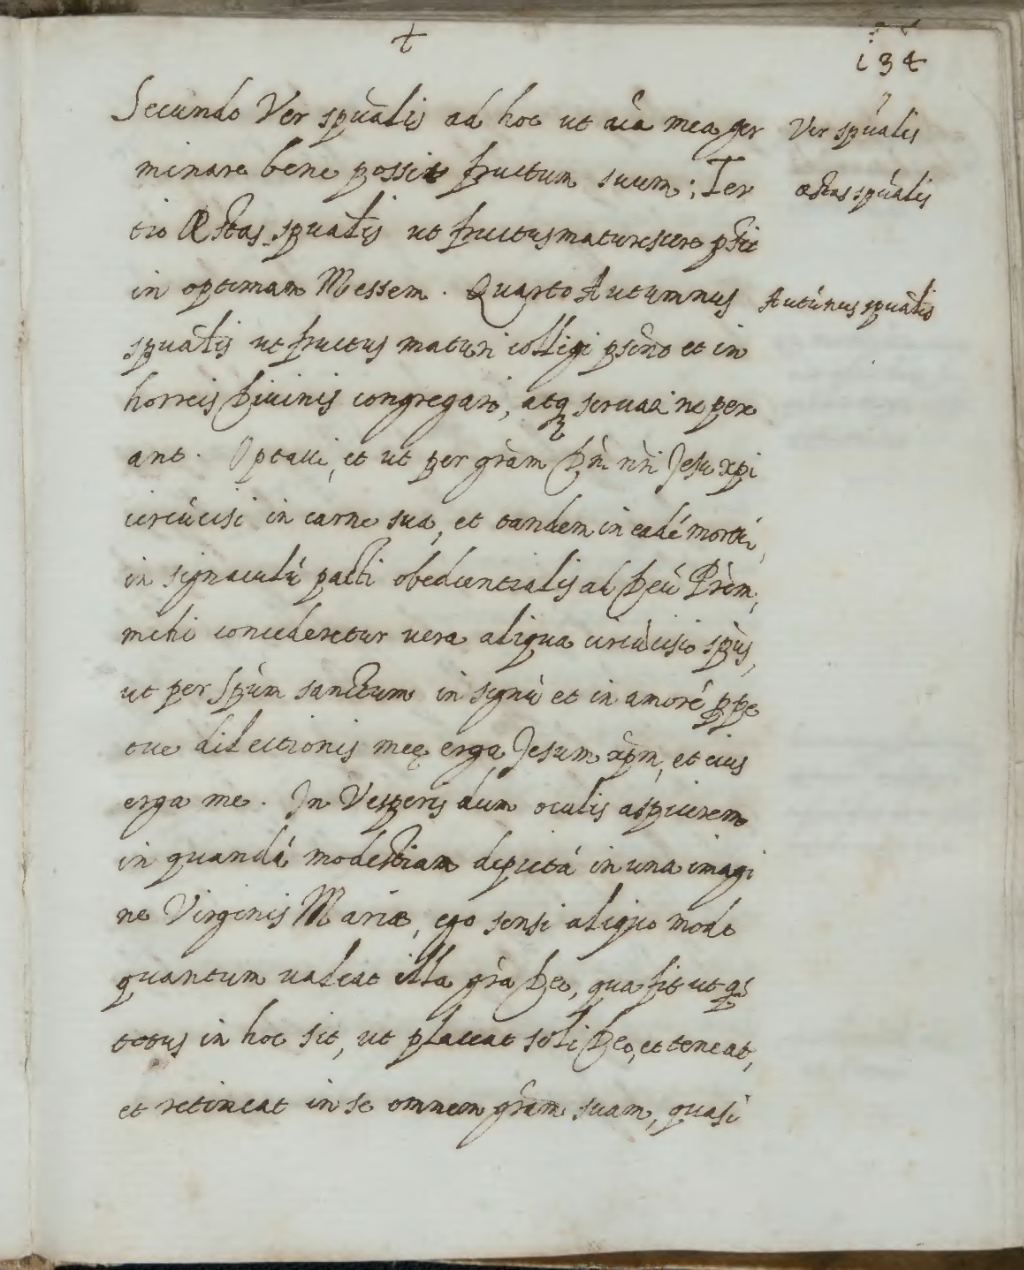 +
134
Secundo Ver spũalis ad hoc ut aĩa mea ger
minare bene possit fructum suum; Ter
tio Æstas spũalis ut fructus maturescere põt
in optimam Messem. Quarto Autumnus
spũalis ut fructus maturi colligi psint et in
horreis Diuinis congregari, atq seruari ne pere
ant. Optaui, et ut per grãm Dñi nri Jesu xpi
circũcisi in carne sua, et tandem in eadẽ mortui,
in signaculũ pacti obedientialis ad Deũ Prẽm,
mihi concederetur uera aliqua circũcisio spũs,
ut per Spũm sanctum in signũ et in amorẽ ppe
tue dilectionis meę erga Jesum xpm, et eius
erga me. In Vesperis dum oculis aspicerem
in quandã modestiam depictã in una imagi
ne Virginis Mariæ, ego sensi aliquo modo
quantum ualeat illa grã Dei, qua fit ut qs
totus in hoc sit, ut placeat soli Deo, et teneat,
et retineat in se omnem grãm suam, quasi
Ver spũalis
æstas spũalis
Autũnus spũalis